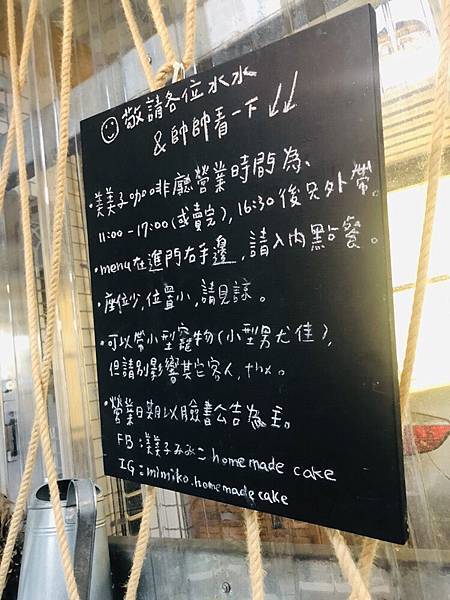 敬請各位水水
& 帥帥看一下 ↙↙
・美美子咖啡廳營業時間為、
11:00-17:00(或賣完), 16:30後只外帶。
・menu在進門右手邊,請入內點餐。
・座位少,位置小,請見諒。
・可以帶小型寵物(小型男犬佳),
但請別影響其它客人,thx。
・營業日期以臉書公告為主。
FB:美美子みみこhomemade cake
IG=mimiko.homemadecake